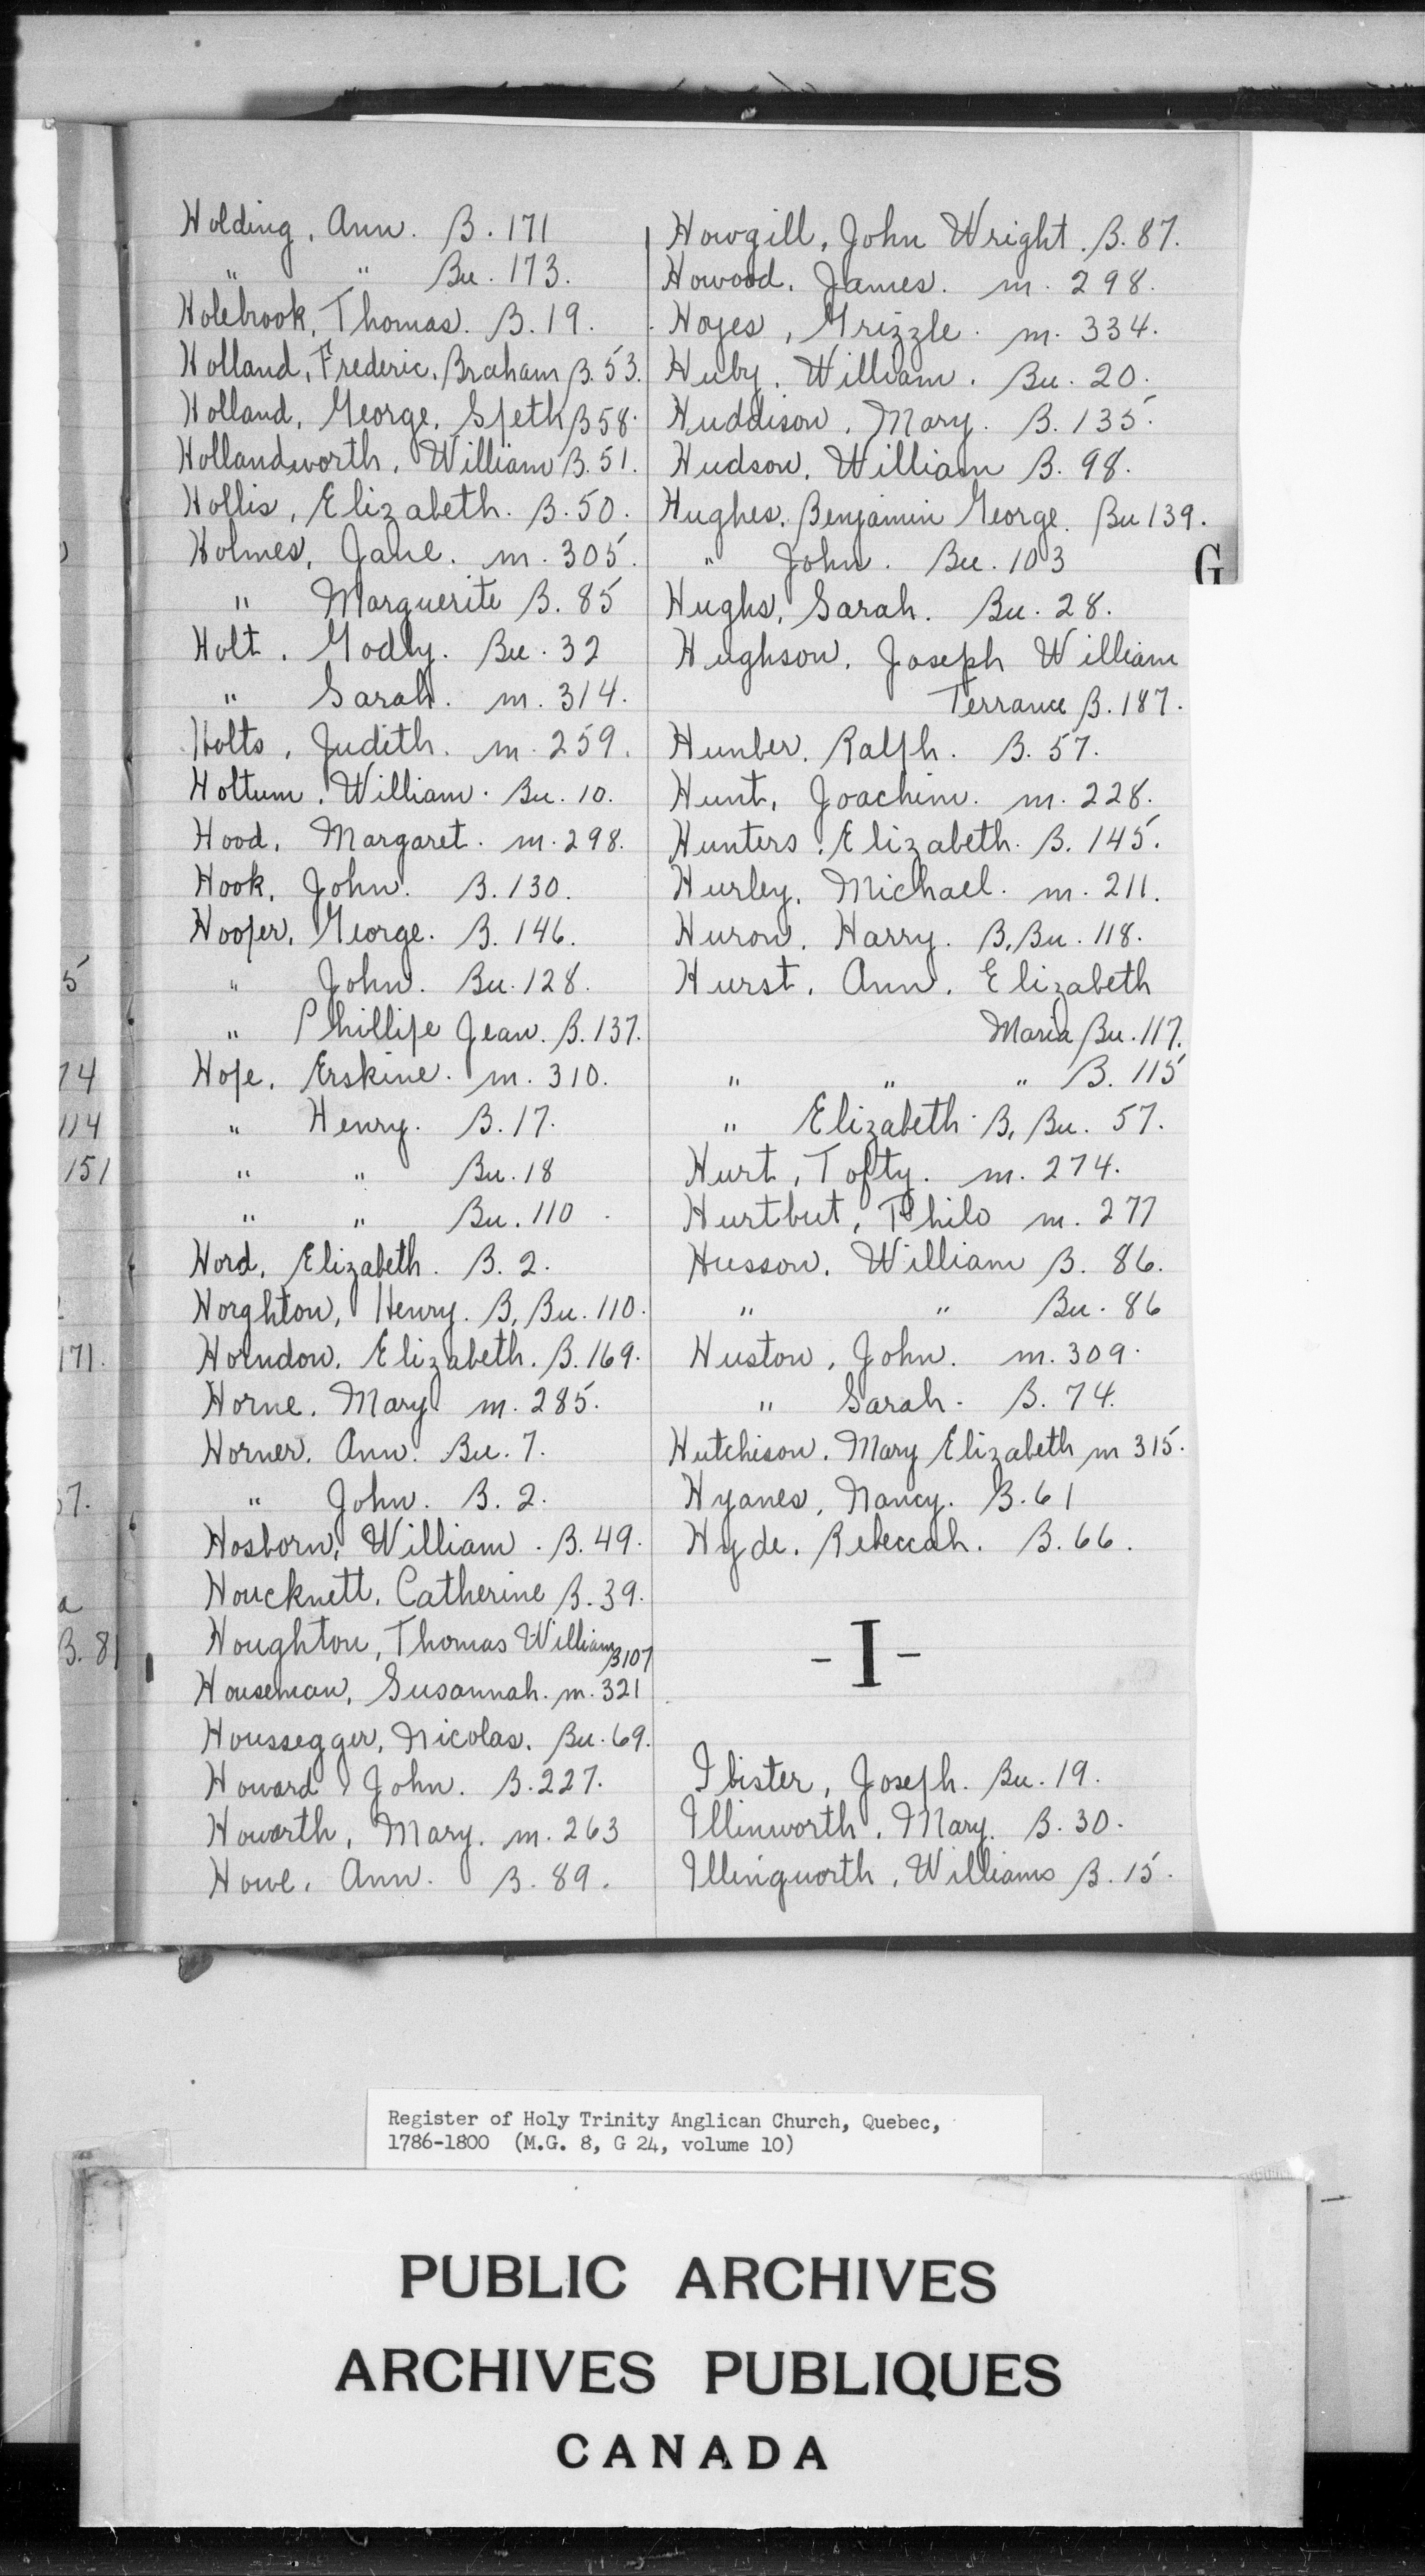 Holding, Ann. B. 171
" " Bu. 173.
Holebrook, Thomas. B. 19.
Holland, Frederic, Braham B. 53.
Holland, George, Speth B 58.
Hollandworth, William B. 51.
Hollis, Elizabeth. B. 50.
Holmes, Jane. m. 305.
" Marguerite B. 85
Holt, Godly. Bu. 32
" Sarah. m. 314.
Holts, Judith. m. 259.
Holtum, William. Bu. 10.
Hood, Margaret. m. 298.
Hook, John. B. 130.
Hooper, George. B. 146.
" John. Bu. 128.
" Phillipe Jean. B. 137.
Hope, Erskine. m. 310.
" Henry. B. 17.
" " Bu. 18
" " Bu. 110.
Hord, Elizabeth. B. 2.
Horghton, Henry. B, Bu. 110.
Horndon, Elizabeth. B. 169.
Horne, Mary. m. 285.
Horner, Ann. Bu. 7.
" John. B. 2.
Hosborn, William. B. 49.
Houcknett, Catherine B. 39.
Houghton, Thomas William B 107
Houseman, Susannah. m. 321
Houssegger, Nicolas. Bu. 69.
Howard, John. B. 227.
Howarth, Mary. m. 263
Howe, Ann. B. 89.
Howgill, John Wright. B. 87.
Howood, James. m. 298.
Hoyes, Grizzle. m. 334.
Huby, William. Bu. 20.
Huddison, Mary. B. 135.
Hudson, William B. 98.
Hughes, Benjamin George. Bu 139.
" John. Bu. 103
G
Hughs, Sarah. Bu. 28.
Hughson, Joseph William
Terrance B. 187.
Hunber, Ralph. B. 57.
Hunt, Joachim. m. 228.
Hunters, Elizabeth. B. 145.
Hurley, Michael. m. 211.
Huron, Harry. B, Bu. 118.
Hurst, Ann, Elizabeth
Maria Bu. 117.
" " " B. 115
" Elizabeth B, Bu. 57.
Hurt, Tofty. m. 274.
Hurtbut, Philo m. 277
Husson, William B. 86.
" " Bu. 86
Huston, John. m. 309.
" Sarah. B. 74.
Hutchison, Mary Elizabeth m 315.
Hyanes, Nancy. B. 61
Hyde, Rebeccah. B. 66.
- I -
Ibister, Joseph. Bu. 19.
Illinworth, Mary. B. 30.
Illingworth, Williams B. 15.
5
74
114
151
171.
57.
a
B. 81
Register of Holy Trinity Anglican Church, Quebec,
1786-1800 (M.G. 8, G 24, volume 10)
PUBLIC ARCHIVES
ARCHIVES PUBLIQUES
CANADA